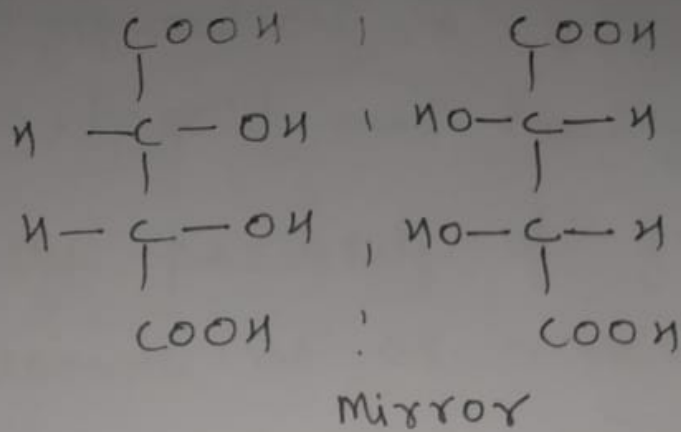 COOH COOH
H - C - OH HO - C - H
H - C - OH HO - C - H
COOH COOH
Mirror